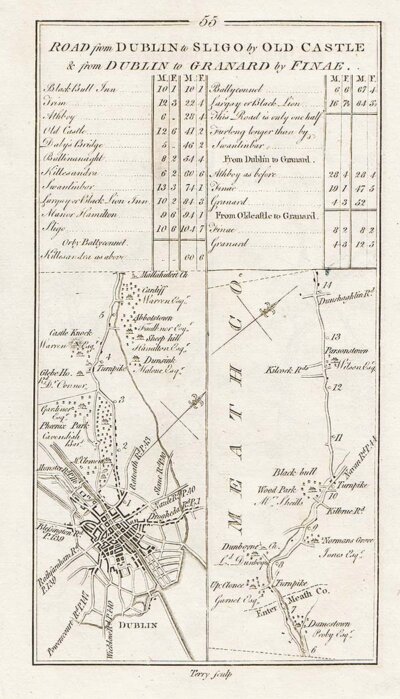 55
ROAD from DUBLIN to SLIGO by OLD CASTLE
& from DUBLIN to GRANARD by FINAE.
M. F. M. F.
Black Bull Inn 10 1 10 1
Trim 12 3 22 4
Athboy 6 - 28 4
Old Castle 12 6 41 2
Daly's Bridge 5 - 46 2
Ballinanaght 8 2 54 4
Killesandra 6 2 60 6
Swanlinbar 13 3 74 1
Largsy or Black Lion Inn 10 2 84 3
Manor Hamilton 9 6 94 1
Sligo 10 6 104 7
Or by Ballyconnel
Killesandra as above 60 6
M. F. M. F.
Ballyconnel 6 6 67 4
Largsy or Black Lion
This Road is only one half
Furlong longer than by
Swanlinbar
From Dublin to Granard.
Athboy as before 28 4 28 4
Finae 19 1 47 5
Granard 4 3 52
From Oldcastle to Granard.
Finae 8 2 8 2
Granard 4 3 12 5
Mallahidert Ch
Cardiff
Warren Esqr.
5
Abbotstown
Faulkner Esqr.
Castle Knock
Warren Esqr.
Sheep hill
Hamilton Esqr.
4
Dunsink
Turnpike
Globe Ho.
Dr. Connor
3
Gardiner Esqr.
Phœnix Park
Cavendish Bart.
2
Ratoath Rd. P. 43
Slane Rd. P.
Naul Rd. P. 40
Drogheda Rd. P. 1
Munster
Blessington Rd.
P. 139
Rathfarnham Rd.
P. 139
Powerscourt Rd. P. 147
Wicklow Rd. P. 140
DUBLIN
MEATH CO.
14
Dunshaghlin Rd.
13
Parsonstown
Wilson Esqr.
Kilcock Rd.
12
11
Navan Rd. P. 44
Black bull
Turnpike
Wood Park
Mr. Sheills
10
Kilbrue Rd.
Normans Grove
Jones Esqr.
Dunboyne Ch.
Ld. Dunboyne
9
8
Up. Clonee
Turnpike
Garnet Esqr.
Enter Meath Co.
7
Damestown
Proby Esqr.
6
Terry sculp